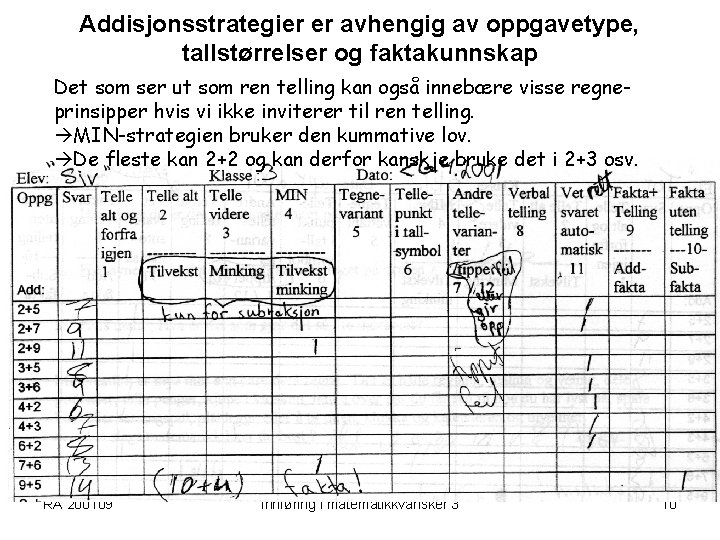 Addisjonsstrategier er avhengig av oppgavetype,
tallstørrelser og faktakunnskap
Det som ser ut som ren telling kan også innebære visse regne-
prinsipper hvis vi ikke inviterer til ren telling.
→MIN-strategien bruker den kummative lov.
→De fleste kan 2+2 og kan derfor kanskje bruke det i 2+3 osv.
Elev: Siv Klasse: 3 Dato: 4.2001
Oppg Svar Telle alt og forfra igjen 1 Telle alt 2 Telle videre 3 MIN 4 Tegne- variant 5 Telle- punkt i tall- symbol 6 Andre telle- varian- ter 7 / 12 Verbal telling 8 Vet svaret auto- matisk 11 rett Fakta+ Telling 9 Fakta uten telling -10-
Tilvekst Minking Tilvekst minking tipper feil eller gir opp Add- fakta Sub- fakta
Add:
2+5 7 kun for subtraksjon /
2+7 9 /
2+9 11 / /
3+5 8 tippet feil /
3+6 9 /
4+2 6 /
4+3 7 /
6+2 8 /
7+6 13 /
9+5 14 (10+4) fakta! /
RA 200109 Innføring i matematikkvansker 3 10